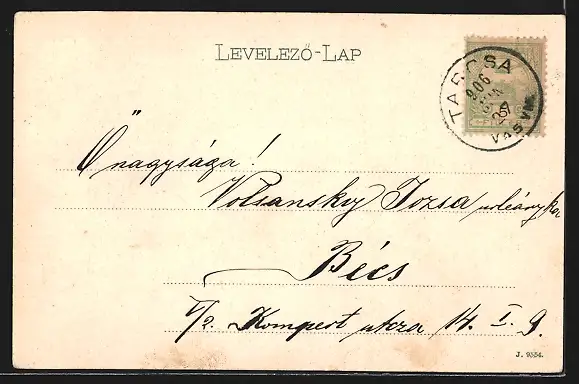 LEVELEZŐ-LAP
TARCSA
906
VASVM.
5
Őnagysága!
Volsansky Jozsa urleányka
Bécs
V/2. Kompert utcza 14. I. 9.
J. 9554.